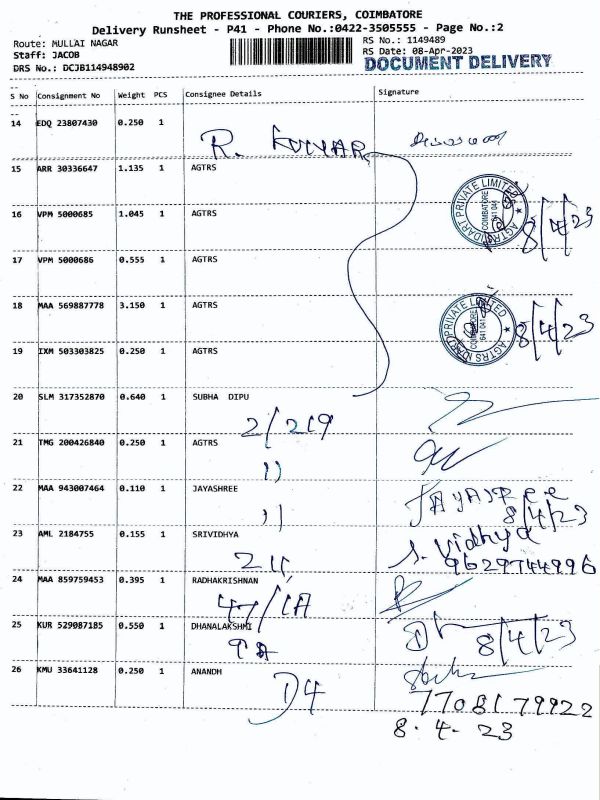 THE PROFESSIONAL COURIERS, COIMBATORE
Delivery Runsheet - P41 - Phone No.:0422-3505555 - Page No.:2
Route: MULLAI NAGAR
RS No.: 1149489
Staff: JACOB
RS Date: 08-Apr-2023
DRS No.: DCJB114948902
DOCUMENT DELIVERY
S No Consignment No Weight PCS Consignee Details Signature
14 EDQ 23807430 0.250 1
R. KUMAR
15 ARR 30336647 1.135 1 AGTRS
16 VPM 5000685 1.045 1 AGTRS
8/4/23
17 VPM 5000686 0.555 1 AGTRS
18 MAA 569887778 3.150 1 AGTRS
8/4/23
19 IXM 503303825 0.250 1 AGTRS
20 SLM 317352870 0.640 1 SUBHA DIPU
2/219
21 TMG 200426840 0.250 1 AGTRS
11
22 MAA 943007464 0.110 1 JAYASHREE
JAYASREE
11
8/4/23
23 AML 2184755 0.155 1 SRIVIDHYA
S. Vidhya
9629744996
24 MAA 859759453 0.395 1 RADHAKRISHNAN
47/1A
25 KUR 529087185 0.550 1 DHANALAKSHMI
9A
8/4/23
26 KMU 33641128 0.250 1 ANANDH
D4
7708179922
8.4.23